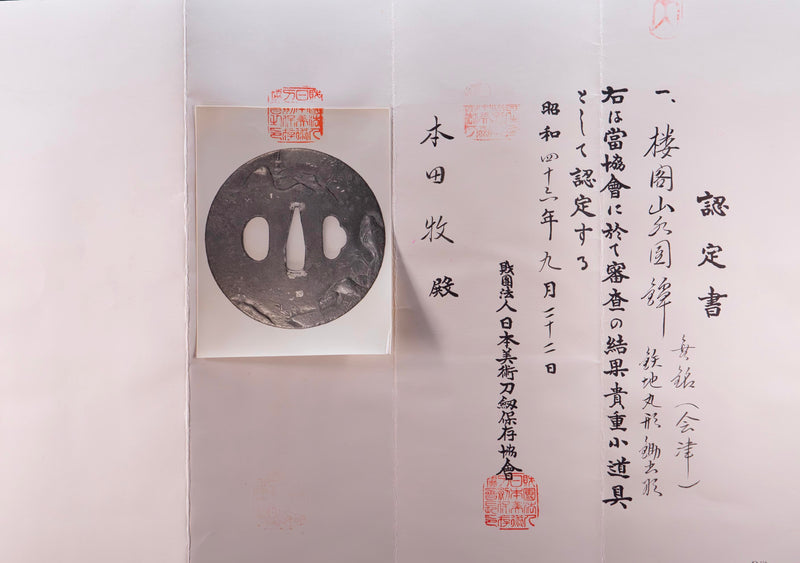 認定書
一、楼閣山水図鐔
無銘（会津）
鉄地丸形鋤出彫
右は當協會に於て審査の結果貴重小道具
として認定する
昭和四十三年九月二十二日
財團法人日本美術刀剣保存協會
本田牧殿